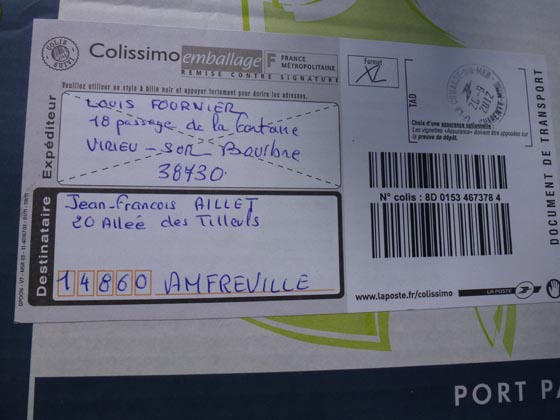 Colissimo emballage F FRANCE MÉTROPOLITAINE
REMISE CONTRE SIGNATURE
Veuillez utiliser un stylo à bille noir et appuyer fortement pour écrire les adresses.
Expéditeur
LOUIS FOURNIER
18 passage de la fontaine
VIRIEU-SUR Bourbre
38730
Destinataire
Jean-François AILLET
20 Alleé des Tilleuls
14860 AMFREVILLE
Format
XL
TAD
Choix d'une assurance optionnelle :
Les vignettes «Assurance» doivent être apposées sur
la preuve de dépôt.
N° colis : 8D 0153 467378 4
www.laposte.fr/colissimo
LA POSTE
DOCUMENT DE TRANSPORT
PORT PA